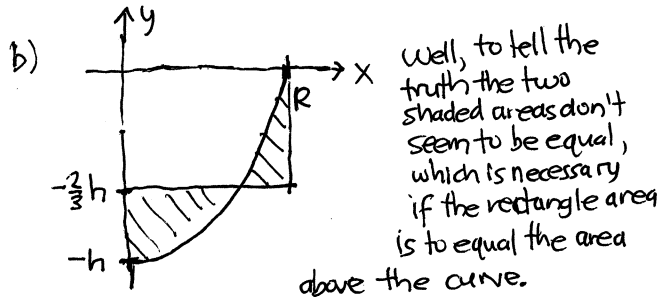 b)
y
x
R
-2/3 h
-h
well, to tell the
truth the two
shaded areas don't
seem to be equal,
which is necessary
if the rectangle area
is to equal the area
above the curve.